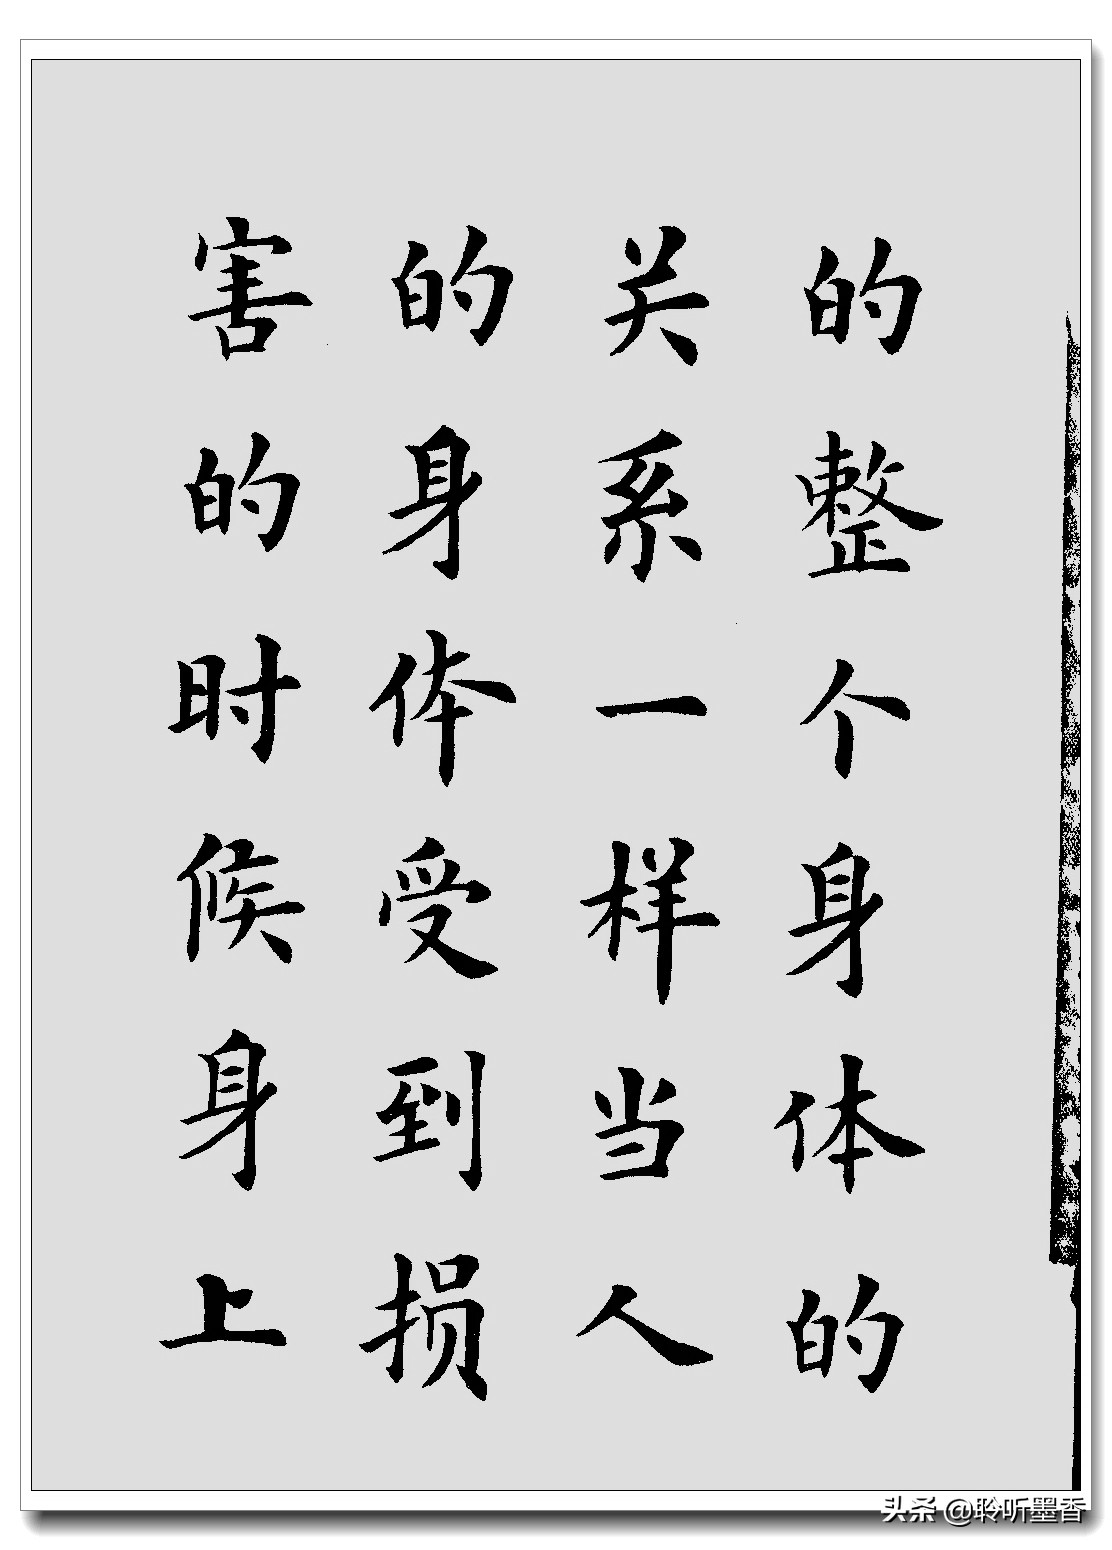 的整个身体的
关系一样当人
的身体受到损
害的时候身上
头条 @聆听墨香